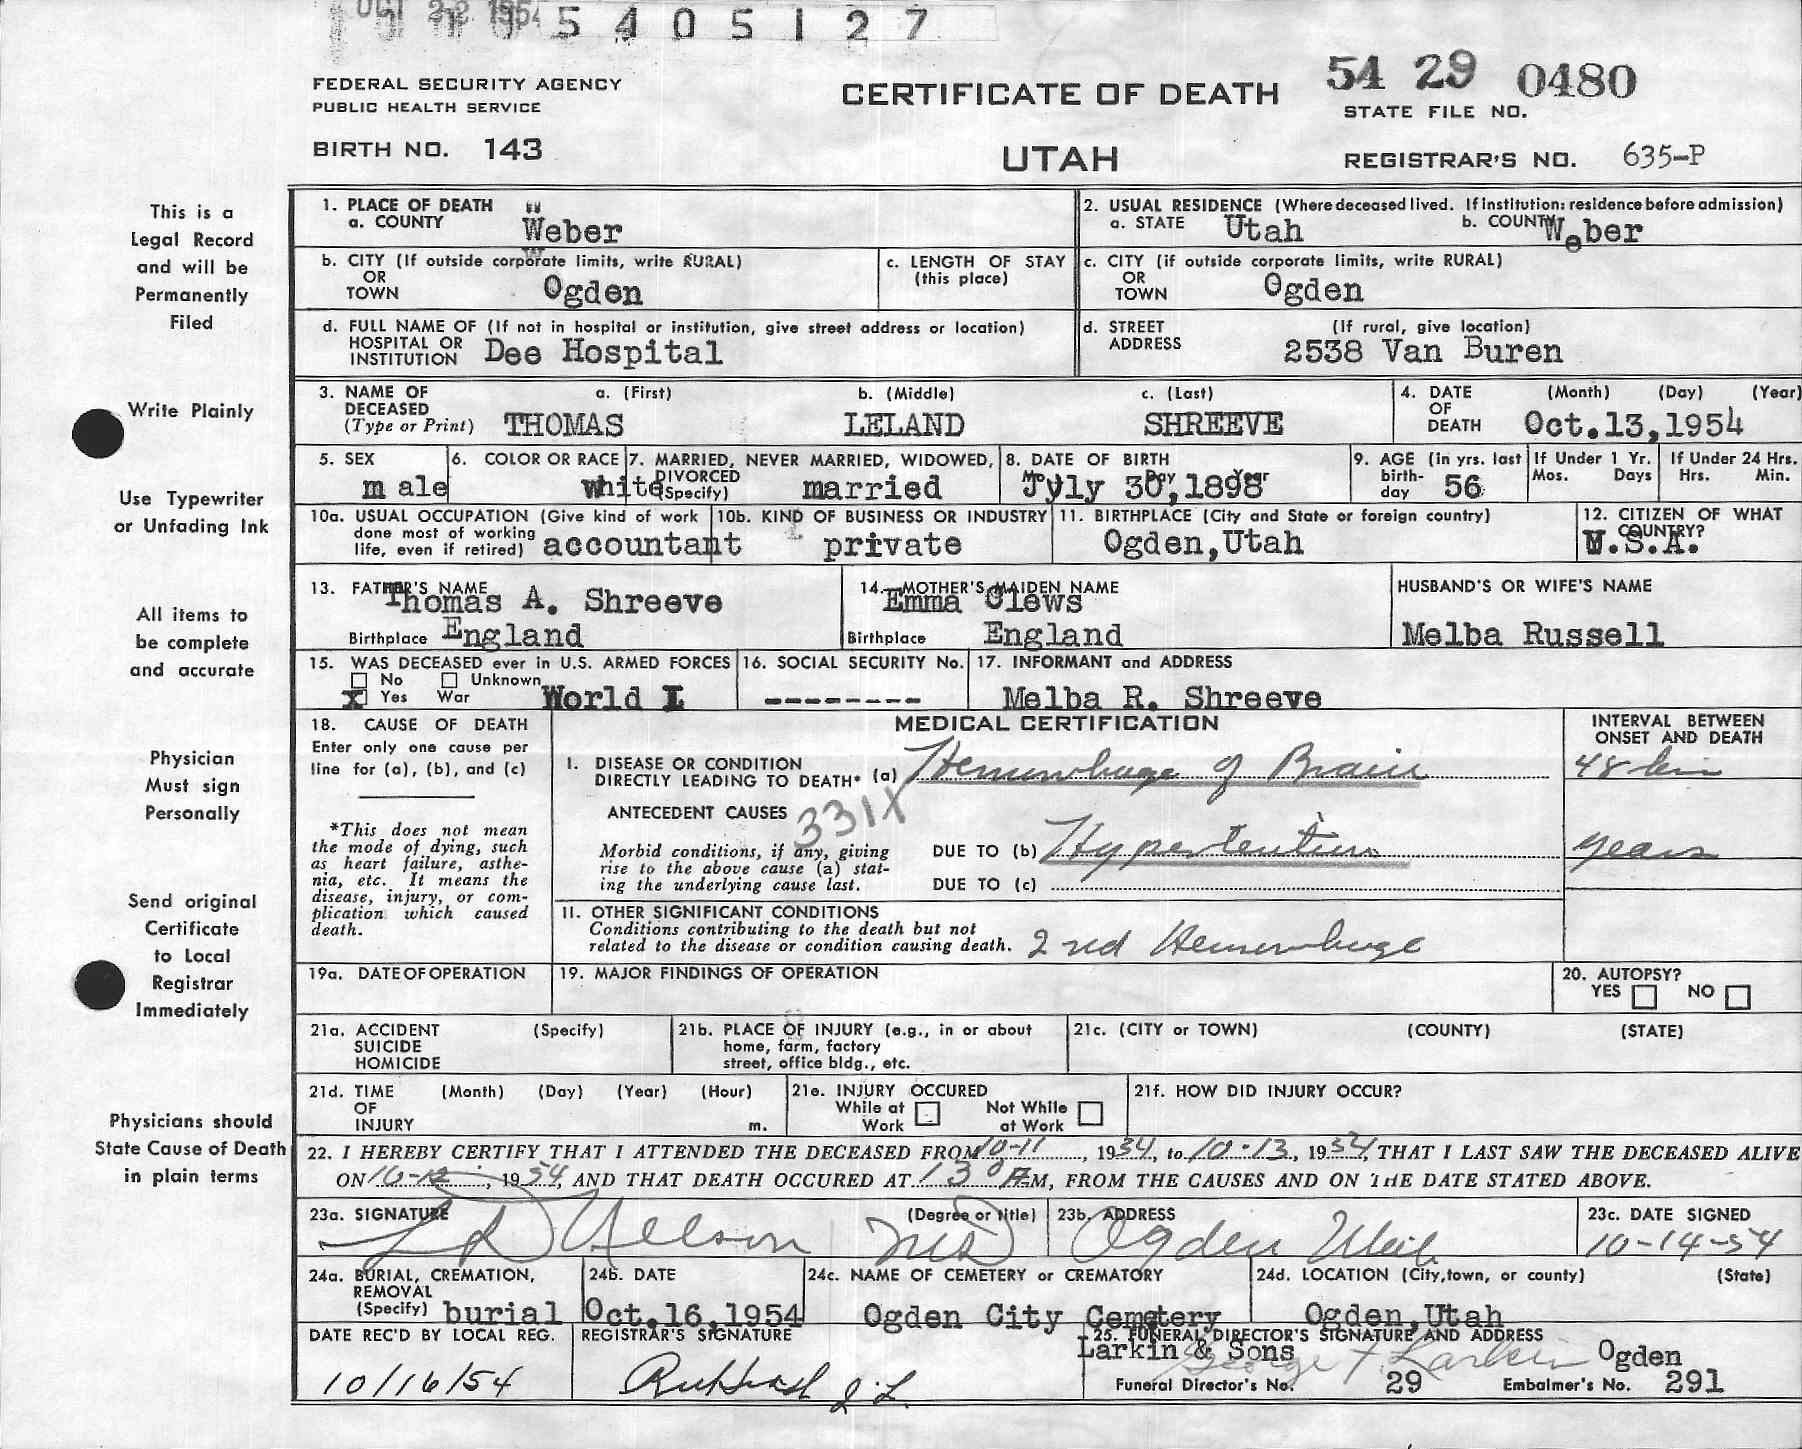 OCT 22 1954
5 4 0 5 1 2 7
FEDERAL SECURITY AGENCY
PUBLIC HEALTH SERVICE
BIRTH NO. 143
CERTIFICATE OF DEATH
UTAH
54 29 0480
STATE FILE NO.
REGISTRAR'S NO. 635-P
This is a
Legal Record
and will be
Permanently
Filed
Write Plainly
Use Typewriter
or Unfading Ink
All items to
be complete
and accurate
Physician
Must sign
Personally
Send original
Certificate
to Local
Registrar
Immediately
Physicians should
State Cause of Death
in plain terms
1. PLACE OF DEATH
a. COUNTY Weber
2. USUAL RESIDENCE (Where deceased lived. If institution: residence before admission)
a. STATE Utah b. COUNTY Weber
b. CITY (If outside corporate limits, write RURAL)
OR
TOWN Ogden
c. LENGTH OF STAY
(this place)
c. CITY (if outside corporate limits, write RURAL)
OR
TOWN Ogden
d. FULL NAME OF (If not in hospital or institution, give street address or location)
HOSPITAL OR
INSTITUTION Dee Hospital
d. STREET (If rural, give location)
ADDRESS 2538 Van Buren
3. NAME OF a. (First) b. (Middle) c. (Last)
DECEASED
(Type or Print) THOMAS LELAND SHREEVE
4. DATE (Month) (Day) (Year)
OF
DEATH Oct.13,1954
5. SEX
male
6. COLOR OR RACE
white
7. MARRIED, NEVER MARRIED, WIDOWED,
DIVORCED
(Specify) married
8. DATE OF BIRTH
July 30,1898
9. AGE (in yrs. last
birth-
day 56
If Under 1 Yr.
Mos. Days
If Under 24 Hrs.
Hrs. Min.
10a. USUAL OCCUPATION (Give kind of work
done most of working
life, even if retired) accountant
10b. KIND OF BUSINESS OR INDUSTRY
private
11. BIRTHPLACE (City and State or foreign country)
Ogden,Utah
12. CITIZEN OF WHAT
COUNTRY?
U.S.A.
13. FATHER'S NAME
Thomas A. Shreeve
Birthplace England
14. MOTHER'S MAIDEN NAME
Emma Clews
Birthplace England
HUSBAND'S OR WIFE'S NAME
Melba Russell
15. WAS DECEASED ever in U.S. ARMED FORCES
No Unknown
X Yes War World I
16. SOCIAL SECURITY No.
--------
17. INFORMANT and ADDRESS
Melba R. Shreeve
18. CAUSE OF DEATH
Enter only one cause per
line for (a), (b), and (c)
*This does not mean
the mode of dying, such
as heart failure, asthe-
nia, etc. It means the
disease, injury, or com-
plication which caused
death.
MEDICAL CERTIFICATION
INTERVAL BETWEEN
ONSET AND DEATH
I. DISEASE OR CONDITION
DIRECTLY LEADING TO DEATH* (a) Hemorrhage of Brain 48 hrs
ANTECEDENT CAUSES 331X
Morbid conditions, if any, giving
rise to the above cause (a) stat-
ing the underlying cause last.
DUE TO (b) Hypertention years
DUE TO (c)
II. OTHER SIGNIFICANT CONDITIONS
Conditions contributing to the death but not
related to the disease or condition causing death. 2nd Hemorrhage
19a. DATE OF OPERATION
19. MAJOR FINDINGS OF OPERATION
20. AUTOPSY?
YES NO
21a. ACCIDENT (Specify)
SUICIDE
HOMICIDE
21b. PLACE OF INJURY (e.g., in or about
home, farm, factory
street, office bldg., etc.
21c. (CITY or TOWN) (COUNTY) (STATE)
21d. TIME (Month) (Day) (Year) (Hour)
OF
INJURY m.
21e. INJURY OCCURED
While at Not While
Work at Work
21f. HOW DID INJURY OCCUR?
22. I HEREBY CERTIFY THAT I ATTENDED THE DECEASED FROM 10-11, 1954, to 10-13, 1954, THAT I LAST SAW THE DECEASED ALIVE
ON 10-12, 1954, AND THAT DEATH OCCURED AT 130 A.M, FROM THE CAUSES AND ON THE DATE STATED ABOVE.
23a. SIGNATURE (Degree or title)
Nelson MD
23b. ADDRESS
Ogden Utah
23c. DATE SIGNED
10-14-54
24a. BURIAL, CREMATION,
REMOVAL
(Specify) burial
24b. DATE
Oct.16,1954
24c. NAME OF CEMETERY or CREMATORY
Ogden City Cemetery
24d. LOCATION (City,town, or county) (State)
Ogden,Utah
DATE REC'D BY LOCAL REG.
10/16/54
REGISTRAR'S SIGNATURE
25. FUNERAL DIRECTOR'S SIGNATURE AND ADDRESS
Larkin & Sons George F. Larkin Ogden
Funeral Director's No. 29 Embalmer's No. 291